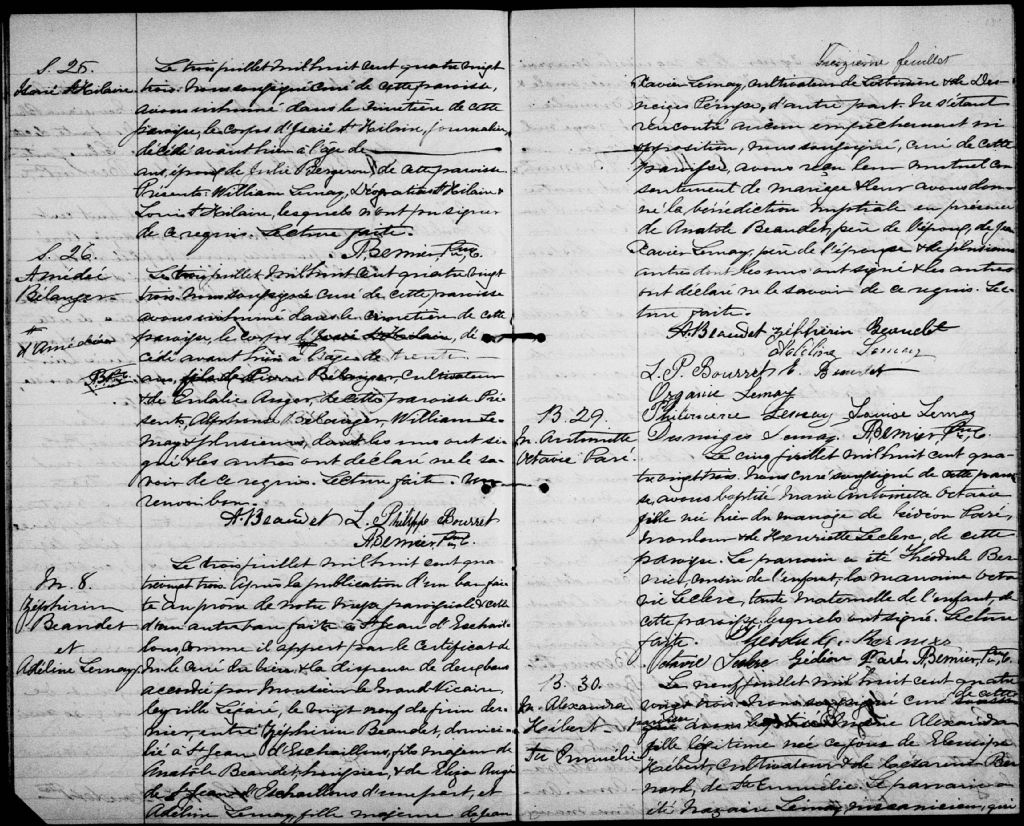 S. 25.
Isaïe St Hilaire
Le trois juillet mil huit cent quatre vingt
trois. Nous soussigné curé de cette paroisse,
avons inhumé dans le cimetière de cette
paroisse, le corps d'Isaïe St Hilaire, journalier,
décédé avant hier à l'âge de
ans, époux de Julie Bergeron, de cette paroisse
Présents William Lemay, St Hilaire &
Louis St Hilaire, lesquels n'ont pu signer
de ce requis. Lecture faite.
A Bernier Ptre C.
S. 26.
Amédé
Bélanger
# d'Amédé
Le trois juillet mil huit cent quatre vingt
trois. Nous soussigné curé de cette paroisse
avons inhumé dans le cimetière de cette
paroisse, le corps d'Isaïe St Hilaire, dé
cédé avant hier à l'âge de trente
ans, fils de Pierre Bélanger, cultivateur
& de Eulalie Auger, de cette paroisse Pré
sents, Alphonse Bélanger, William Le
may & plusieurs, dont les uns ont si
gné & les autres ont déclaré ne le sa
voir de ce requis. Lecture faite. Un
renvoi bon.
A. Beaudet L. Philippe Bourret
A Bernier, Ptre C.
M. 8
Zéphirin
Beaudet
et
Adéline Lemay
Le trois juillet mil huit cent qua
trevingt trois, après la publication d'un ban fai
te au prône de notre messe paroissiale & celle
d'un autre ban faite à St Jean d'Eschail
lons, comme il appert par le certificat de
M le curé du lieu & la dispense de deux bans
accordée par Monsieur le Grand Vicaire
Cyrille Légaré, le vingt neuf de juin der
nier, entre Zéphirin Beaudet, domici
lié à St Jean d'Eschaillons, fils majeur de
Anatole Beaudet, & de Eliza Augé
de St Jean d'Eschaillons d'une part, et
Adéline Lemay, fille majeure de Jean
Treizième feuillet
Xavier Lemay, cultivateur de Lotbinière & de Des
neiges Pérusse, d'autre part. Ne s'étant
rencontré aucun empêchement ni
opposition, nous soussigné, curé de cette
paroisse, avons reçu leur mutuel con
sentement de mariage & leur avons don
né la bénédiction nuptiale en présence
de Anatole Beaudet, père de l'époux, de Jean
Xavier Lemay, père de l'épouse & de plusieurs
autres dont les uns ont signé & les autres
ont déclaré ne le savoir de ce requis. Lec
ture faite.
A. Beaudet Zéphirin Beaudet
Adéline Lemay
L. P. Bourret
Lemay
Philomène Lemay Louise Lemay
Desneiges Lemay A Bernier, Ptre C.
B. 29.
M. Antoinette
Octavie Paré.
Le cinq juillet mil huit cent qua
tre vingt trois. Nous curé soussigné de cette parois
se, avons baptisé Marie Antoinette Octavie
fille née hier du mariage de Gédéon Paré,
& de Henriette Leclerc, de cette
paroisse. Le parrain a été Théodule Ber
nier, cousin de l'enfant, la marraine Octa
vie Leclerc, tante maternelle de l'enfant, de
cette paroisse, lesquels ont signé. Lecture
faite. Théodule Bernier
Octavie Leclerc Gédéon Paré A Bernier, Ptre C.
B. 30.
M. Alexandra
Hébert
Ste Emmélie
Le neuf juillet mil huit cent quatre
vingt trois. Nous soussigné curé de cette
paroisse avons baptisé Marie Alexandra
fille légitime née ce jour de
Hébert, cultivateur & de Césarine Ber
nard, de Ste Emmélie. Le parrain a
été Nazaire Lemay, mécanicien, qui